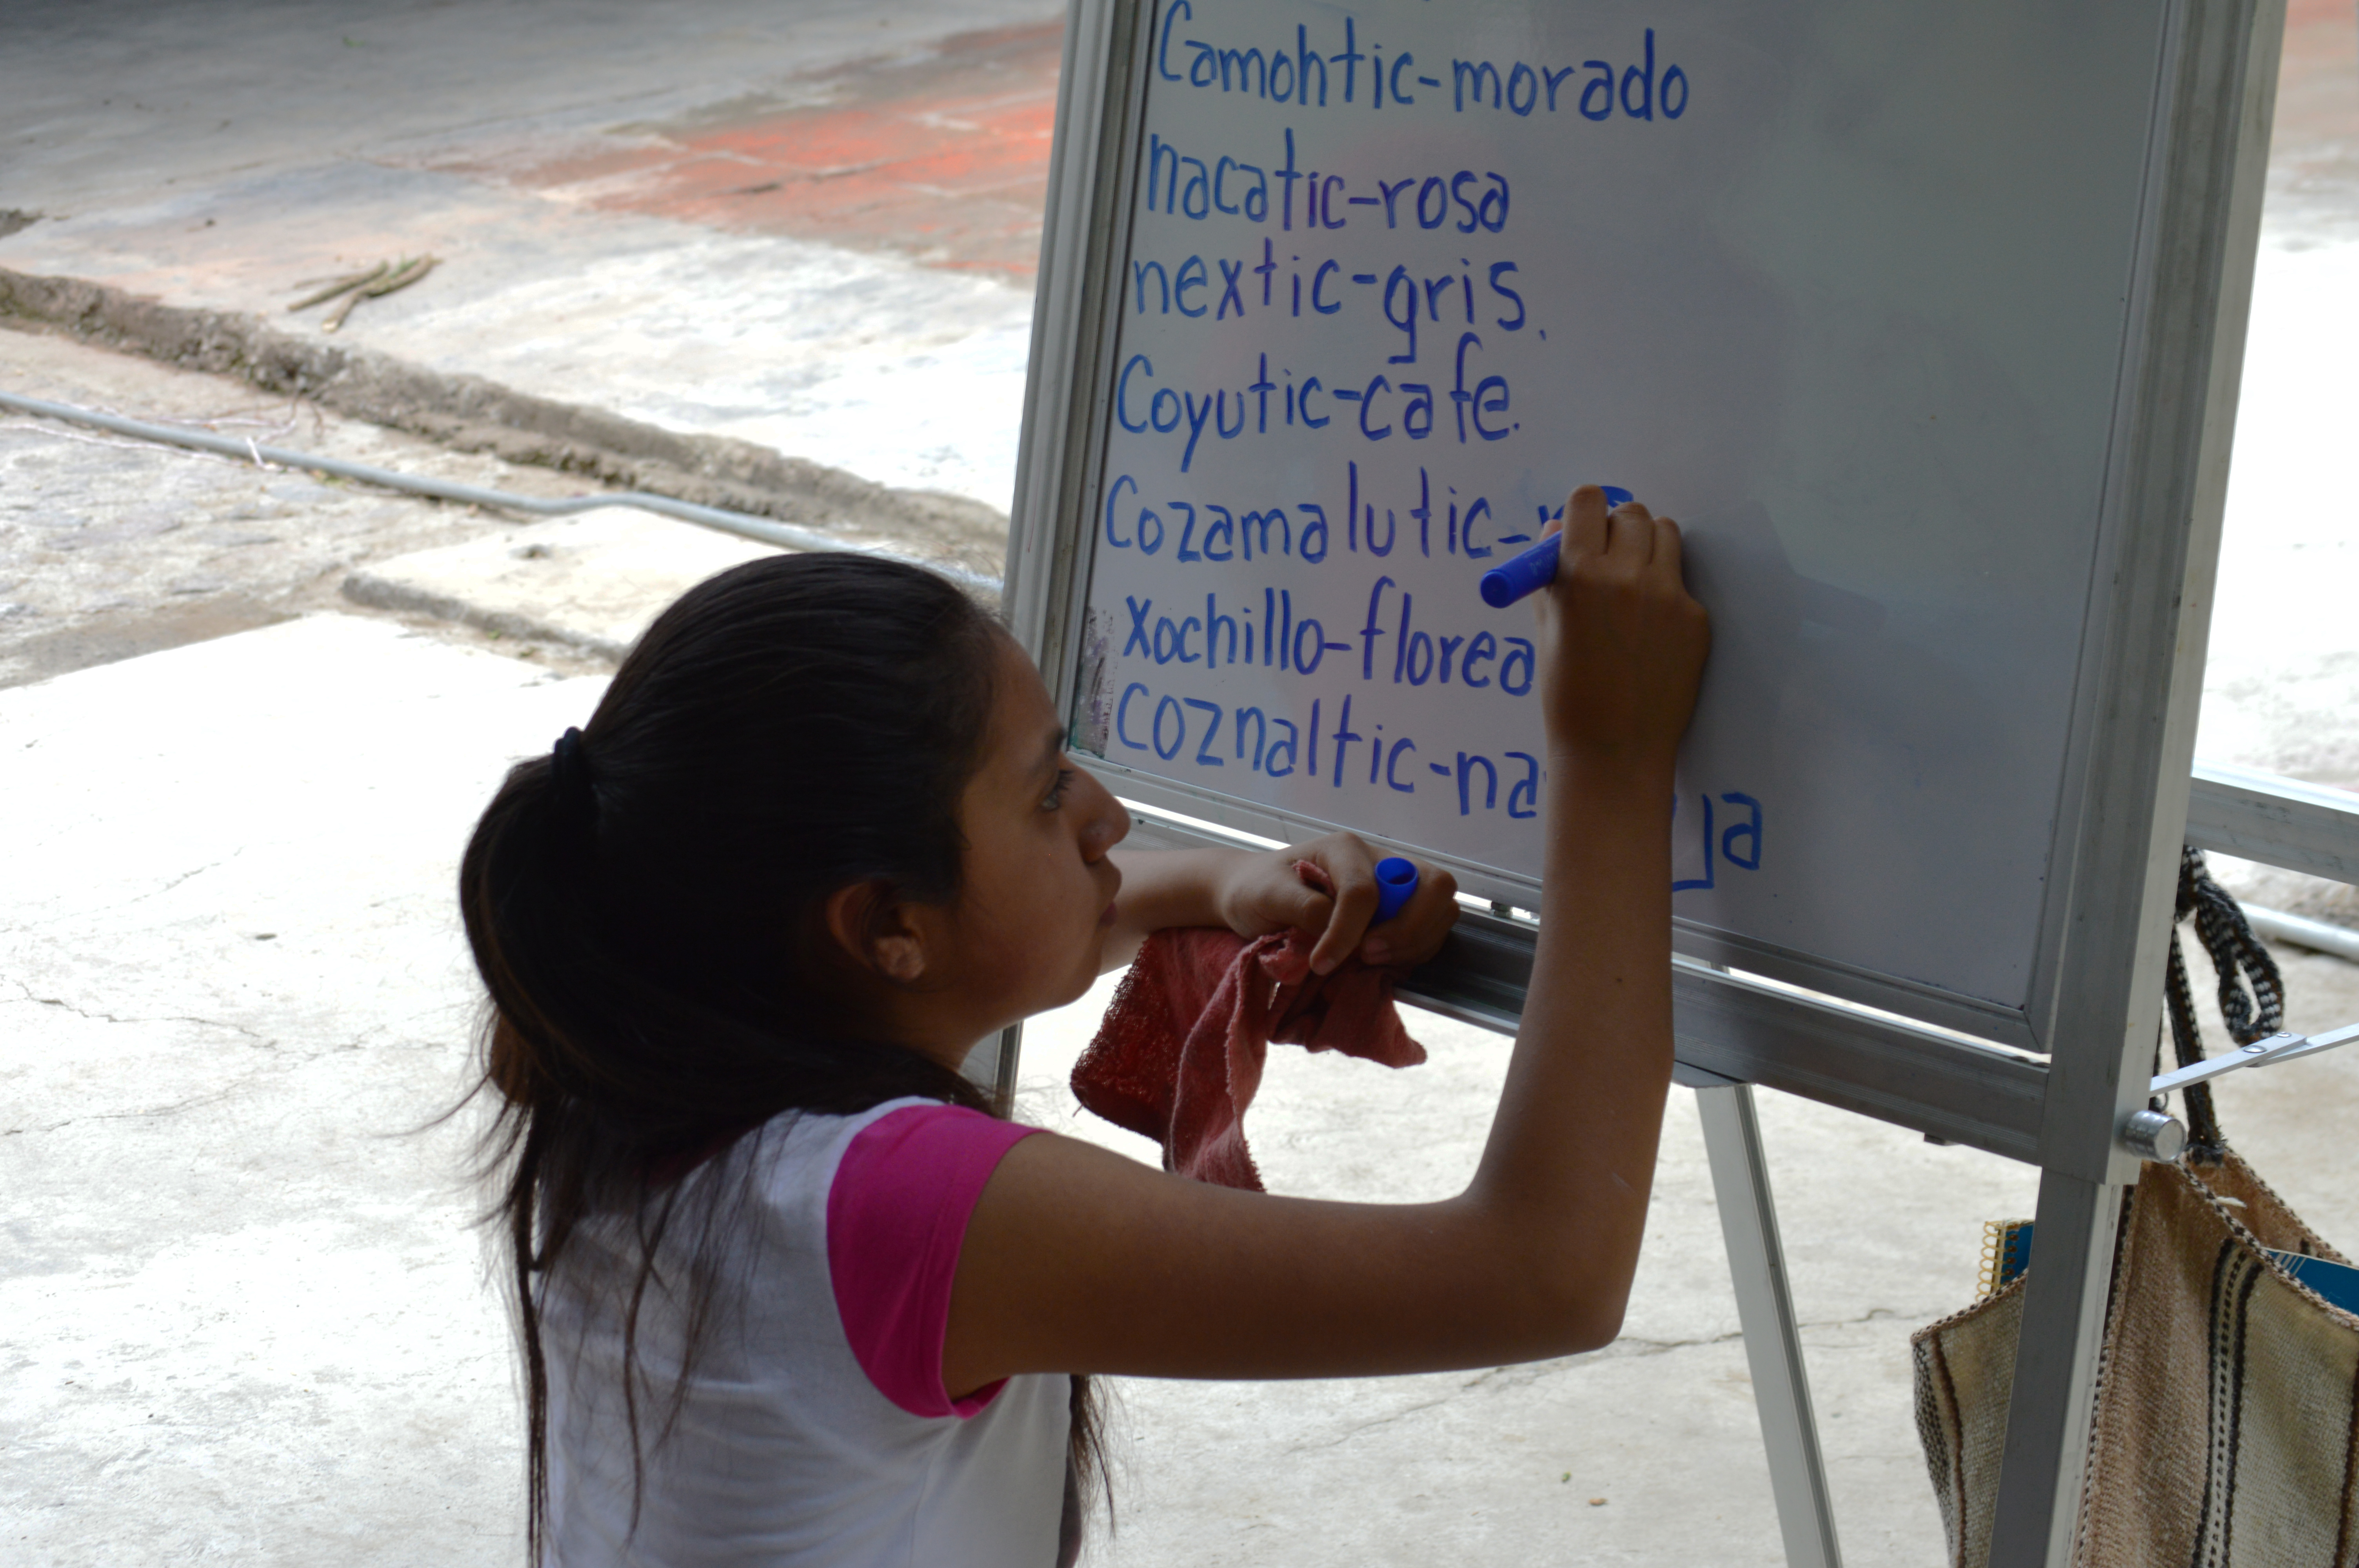 Camohtic-morado
nacatic-rosa
nextic-gris.
Coyutic-cafe.
Cozamalutic-
xochillo-florea
coznaltic-